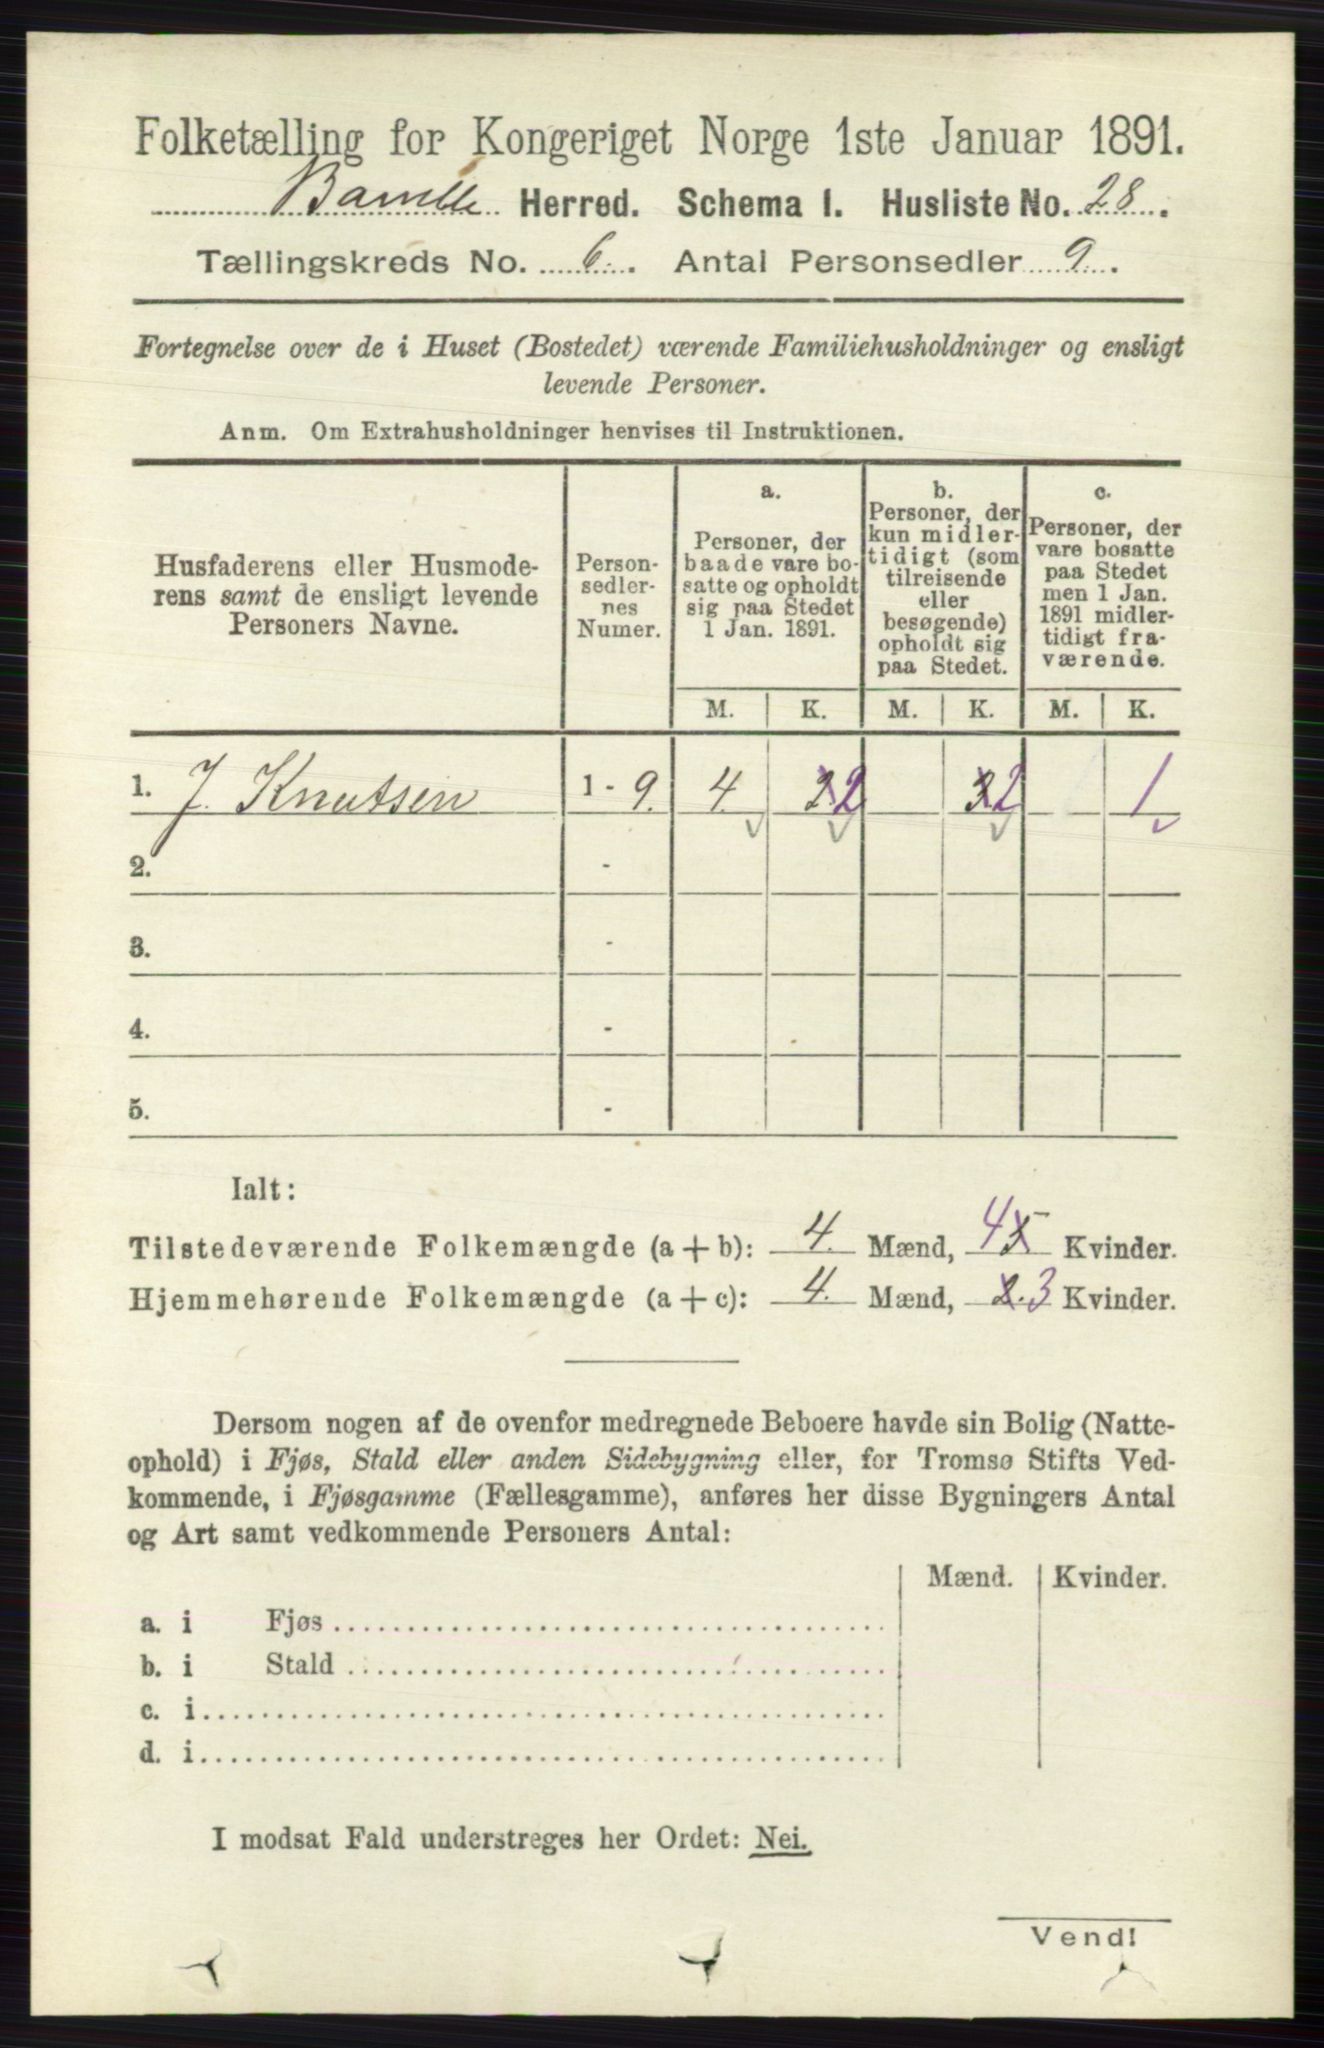 Folketælling for Kongeriget Norge 1ste Januar 1891.
Bamble Herred. Schema I. Husliste No. 28.
Tællingskreds No. 6. Antal Personsedler 9.
Fortegnelse over de i Huset (Bostedet) værende Familiehusholdninger og ensligt
levende Personer.
Anm. Om Extrahusholdninger henvises til Instruktionen.
Husfaderens eller Husmoderens samt de ensligt levende
Personers Navne.
Person-
sedler-
nes
Numer.
a.
Personer, der
baade vare bo-
satte og opholdt
sig paa Stedet
1 Jan. 1891.
b.
Personer, der
kun midler-
tidigt (som
tilreisende
eller
besøgende)
opholdt sig
paa Stedet.
c.
Personer, der
vare bosatte
paa Stedet
men 1 Jan.
1891 midler-
tidigt fra-
værende.
M. K. M. K. M. K.
1. J. Knutsen 1 - 9. 4. 2 2 1
2. -
3. -
4. -
5. -
Ialt:
Tilstedeværende Folkemængde (a + b): 4. Mænd, 4 5 Kvinder.
Hjemmehørende Folkemængde (a + c): 4. Mænd, 2. 3 Kvinder.
Dersom nogen af de ovenfor medregnede Beboere havde sin Bolig (Natte-
ophold) i Fjøs, Stald eller anden Sidebygning eller, for Tromsø Stifts Ved-
kommende, i Fjøsgamme (Fællesgamme), anføres her disse Bygningers Antal
og Art samt vedkommende Personers Antal:
Mænd. Kvinder.
a. i Fjøs
b. i Stald
c. i
d. i
I modsat Fald understreges her Ordet: Nei.
Vend!